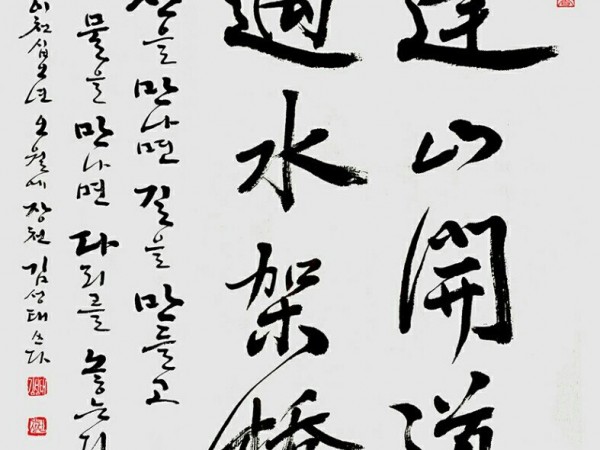 逢山開道
遇水架橋
산을 만나면 길을 만들고
물을 만나면 다리를 놓는다
이천십오년 오월에 장천 김성태 쓰다